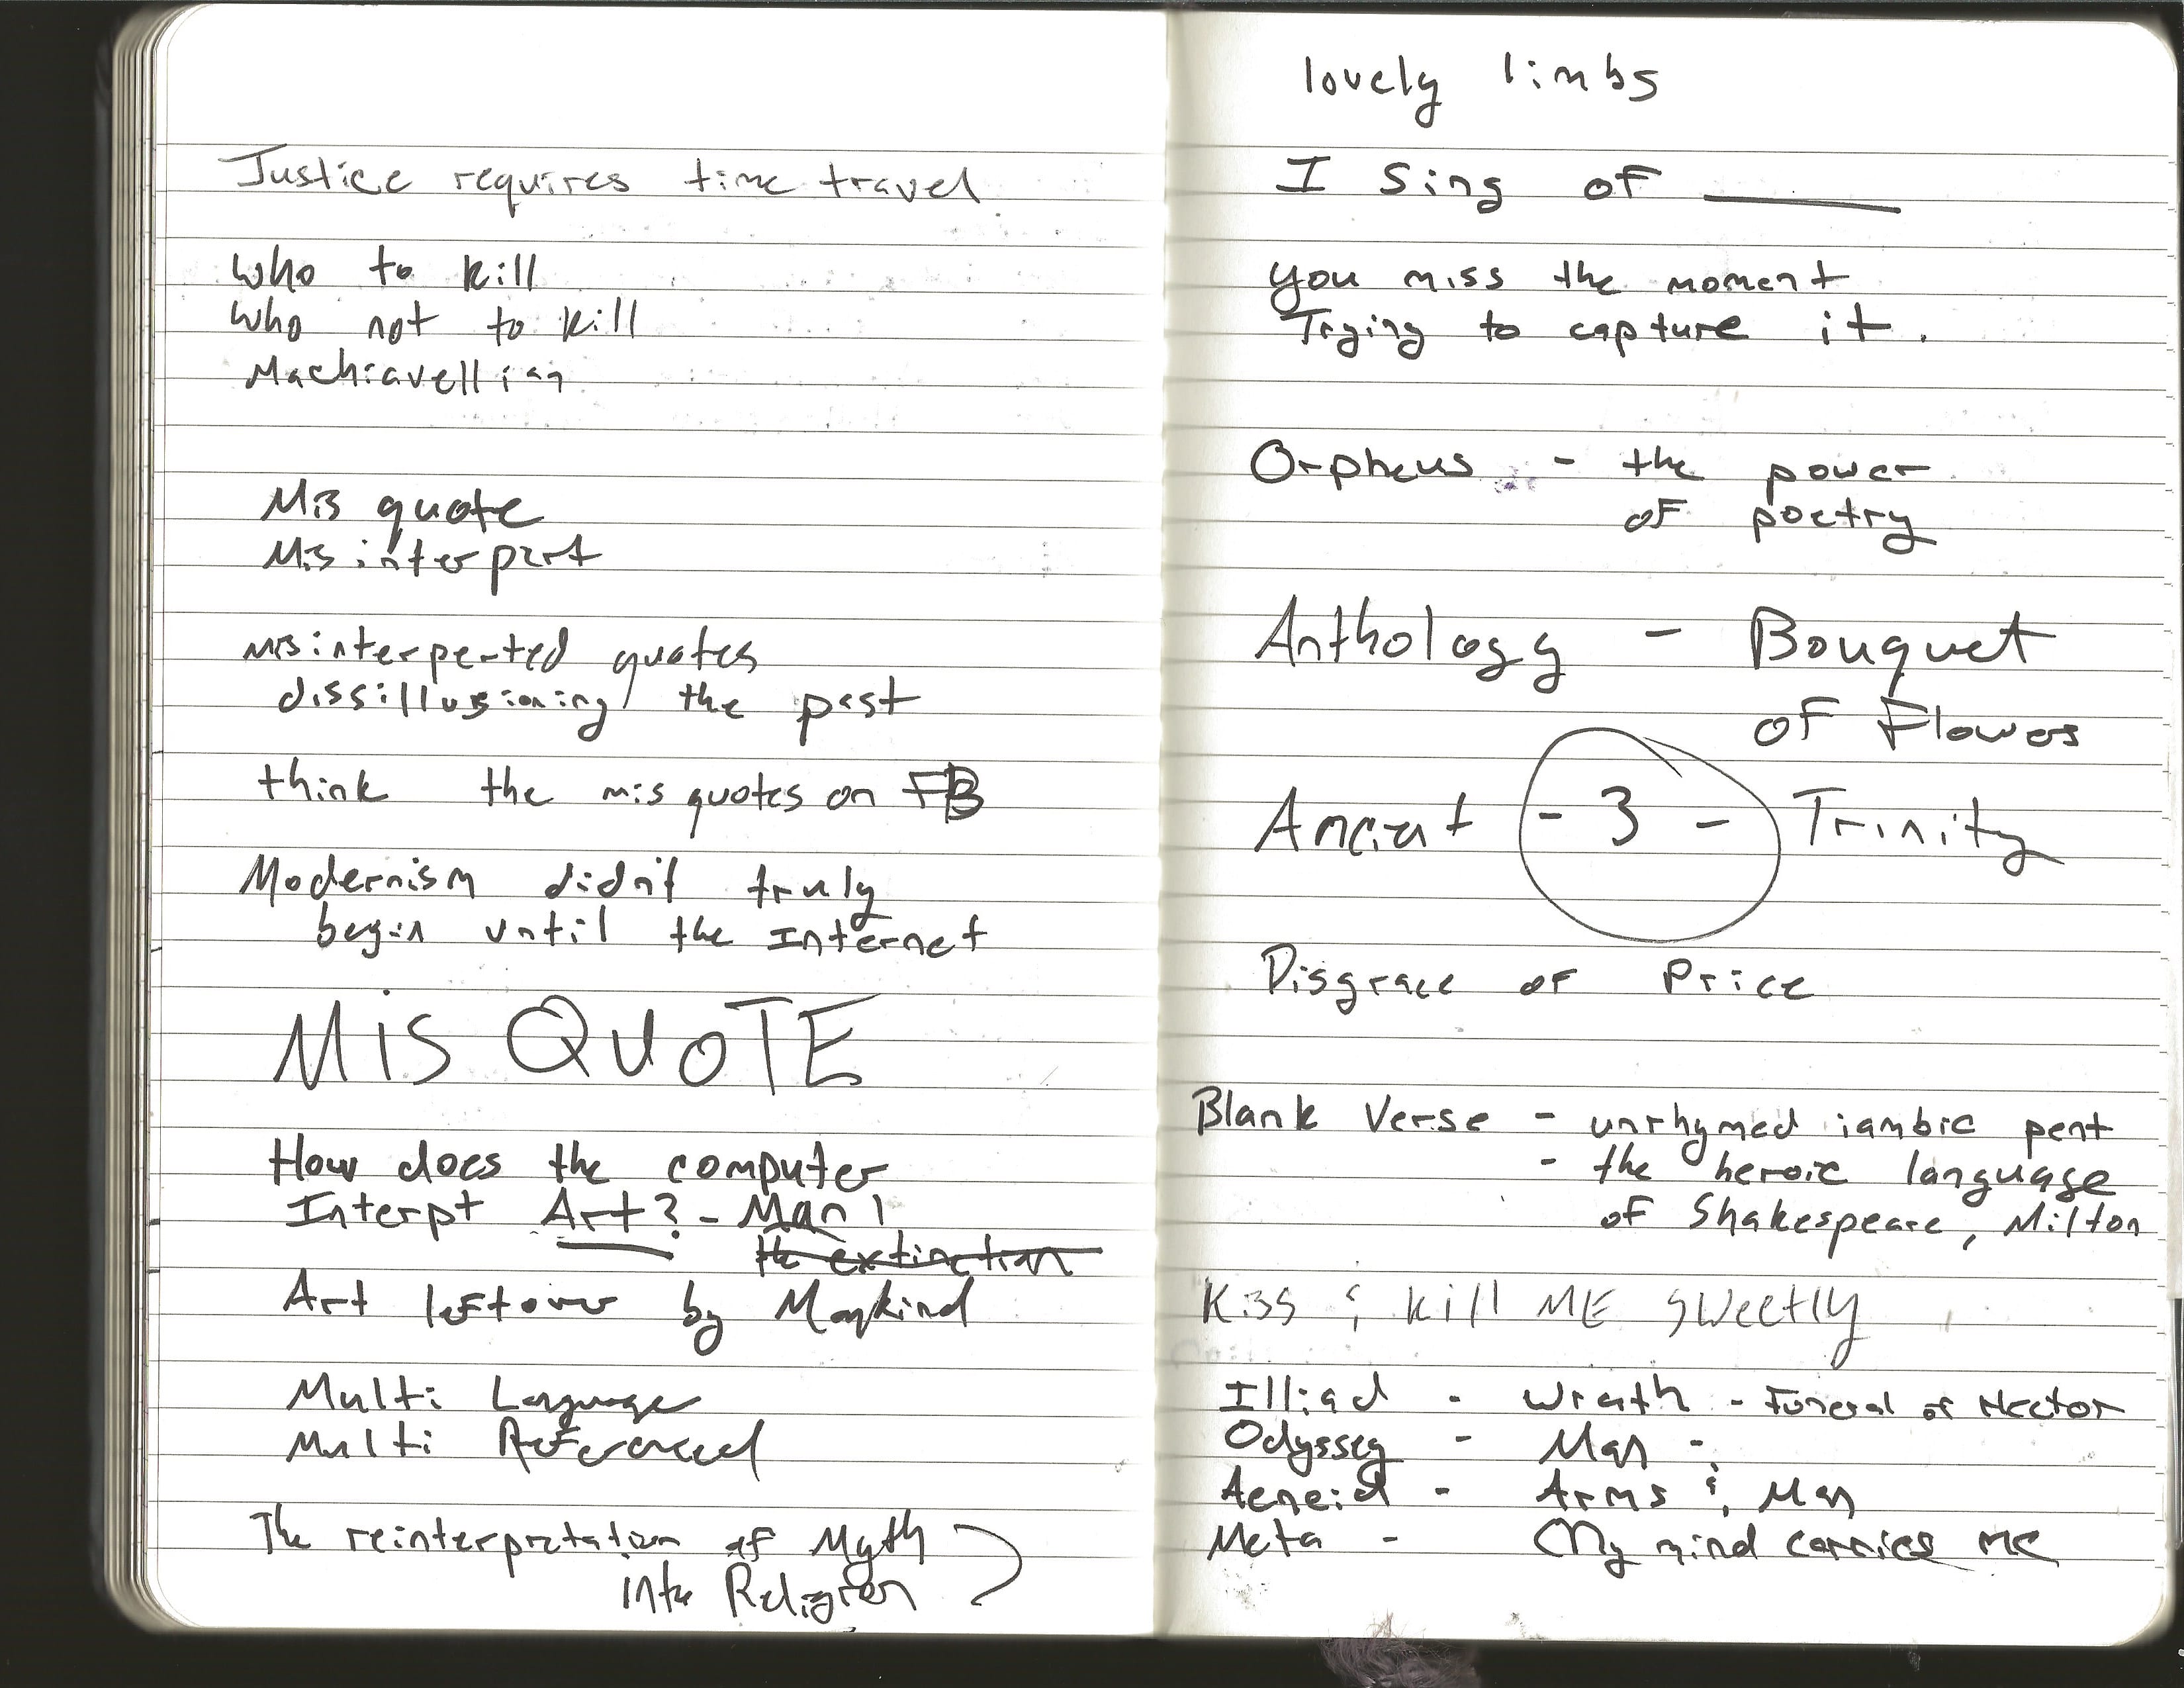 Justice requires time travel
Who to kill
Who not to kill
Machiavellian
Mis quote
Mis interpart
misinterperted quotes
dissillusioning the past
think the mis quotes on FB
Modernism didn't truly
begin until the Internet
MIS QUOTE
How does the computer
Interpt Art? - Man
the extinction
Art leftover by Mankind
Multi Language
Multi Referenced
The reinterpretation of Myth
into Religion
lovely limbs
I Sing of ____
you miss the moment
Trying to capture it.
Orpheus - the power
of poetry
Anthology - Bouquet
of Flowers
Ancient - 3 - Trinity
Disgrace of Price
Blank Verse - unrhymed iambic pent
- the heroic language
of Shakespeare, Milton
Kiss & kill ME sweetly
Illiad - Wrath - Funeral of Hector
Odyssey - Man -
Aeneid - Arms & Man
Meta - My mind carries me